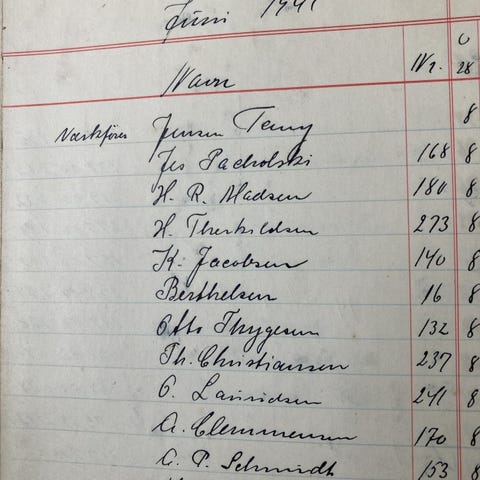 Juni 1941
Navn Nr. 28
Værkfører Jensen Temy 8
Jes Pacholski 168 8
H. R. Madsen 180 8
H. Therkildsen 273 8
K. Jacobsen 140 8
Berthelsen 16 8
Otto Thygesen 132 8
Th. Christiansen 237 8
O. Lauridsen 241 8
A. Clemmensen 170 8
A. P. Schmidt 153 8